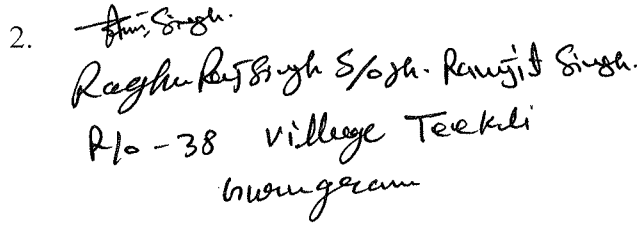 2. Singh.
Raghu Raj Singh S/o Sh. Ranjit Singh.
R/o - 38 village Teekli
Gurugram